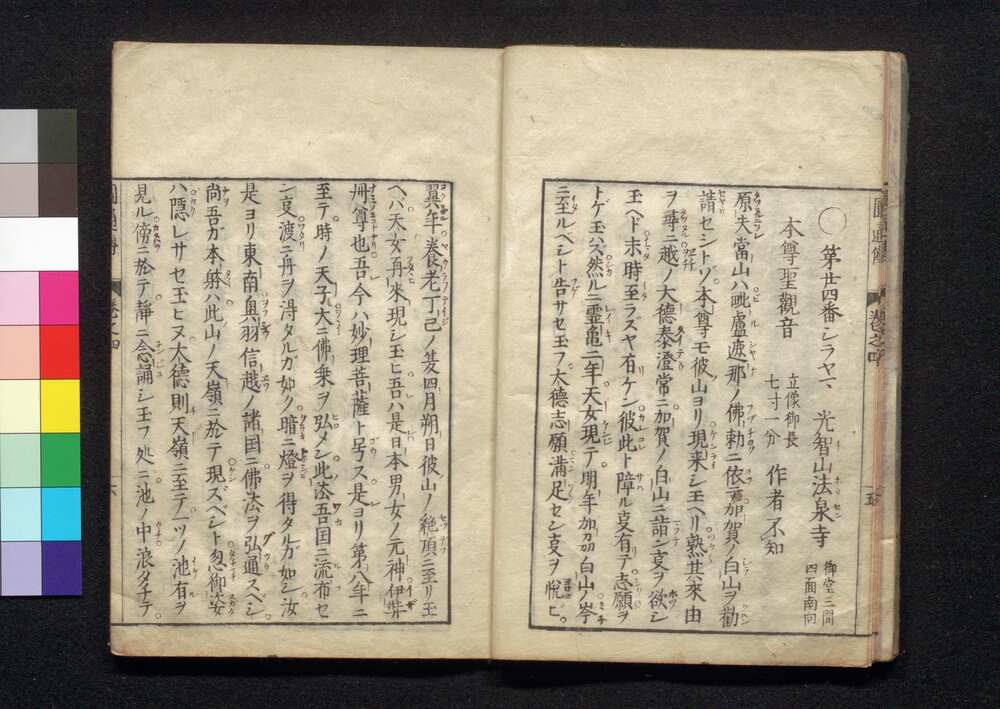 圓通傳 卷之四 五
◯ 第廿四番シラヤマ 光智山法泉寺 御堂三間四面南向
本尊聖觀音 立像御長七寸一分 作者不知
原夫當山ハ毗盧遮那ノ佛勅ニ依テ加賀ノ白山ヲ勸
請セシトゾ本尊モ彼山ヨリ現来シ玉ヘリ熟其来由
ヲ尋ニ越ノ大德泰澄常ニ加賀ノ白山ニ詣ン事ヲ欲シ
玉ヘド未時至ラズヤ有ケン彼此ト障ル事有テ志願ヲ
トゲ玉ハズ然ルニ霊亀二年天女現テ明年加刕白山ノ岑
ニ至ルベシト告サセ玉フ大德志願満足セシ事ヲ悦ヒ
翼年養老丁己ノ夏四月朔日彼山ノ絶頂ニ至リ玉
ヘバ天女再來現シ玉ヒ吾ハ是日本男女ノ元神伊弉
冊尊也吾今ハ妙理菩薩ト号ス是ヨリ第八年ニ
至テ時ノ天子大ニ佛乗ヲ弘メン此法吾国ニ流布セ
ン事渡ニ舟ヲ得タルガ如ク暗ニ燈ヲ得タルガ如シ汝
是ヨリ東南奥羽信越ノ諸国ニ佛法ヲ弘通スベシ
尚吾ガ本躰ハ此山ノ天嶺ニ於テ現ズベシト忽御姿
ハ隠レサセ玉ヒヌ大德則天嶺ニ至テ一ツノ池有ヲ
見ル傍ニ於テ静ニ念誦シ玉フ処ニ池ノ中浪タチテ
圓通傳 卷之四 六